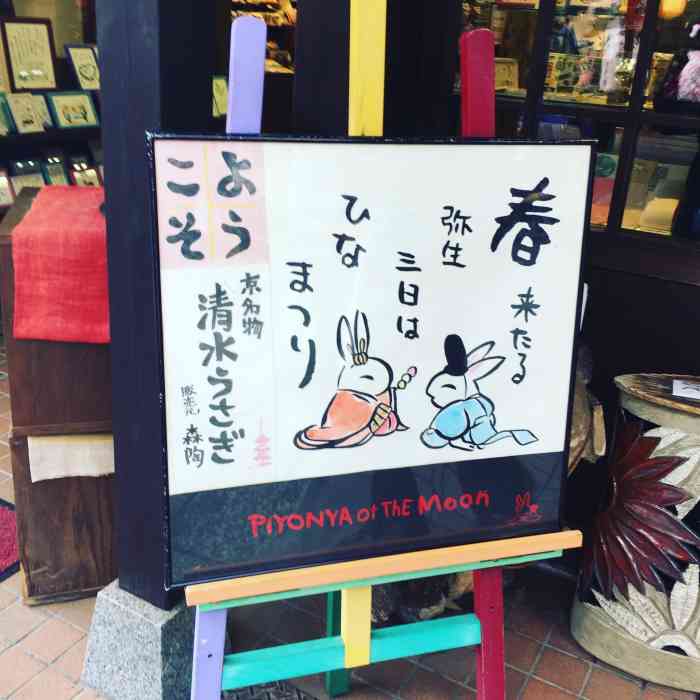 春
来たる
弥生
三日は
ひな
まつり
よう
こそ
京名物
清水うさぎ
販売元
森陶
PIYONYA of THE MOON